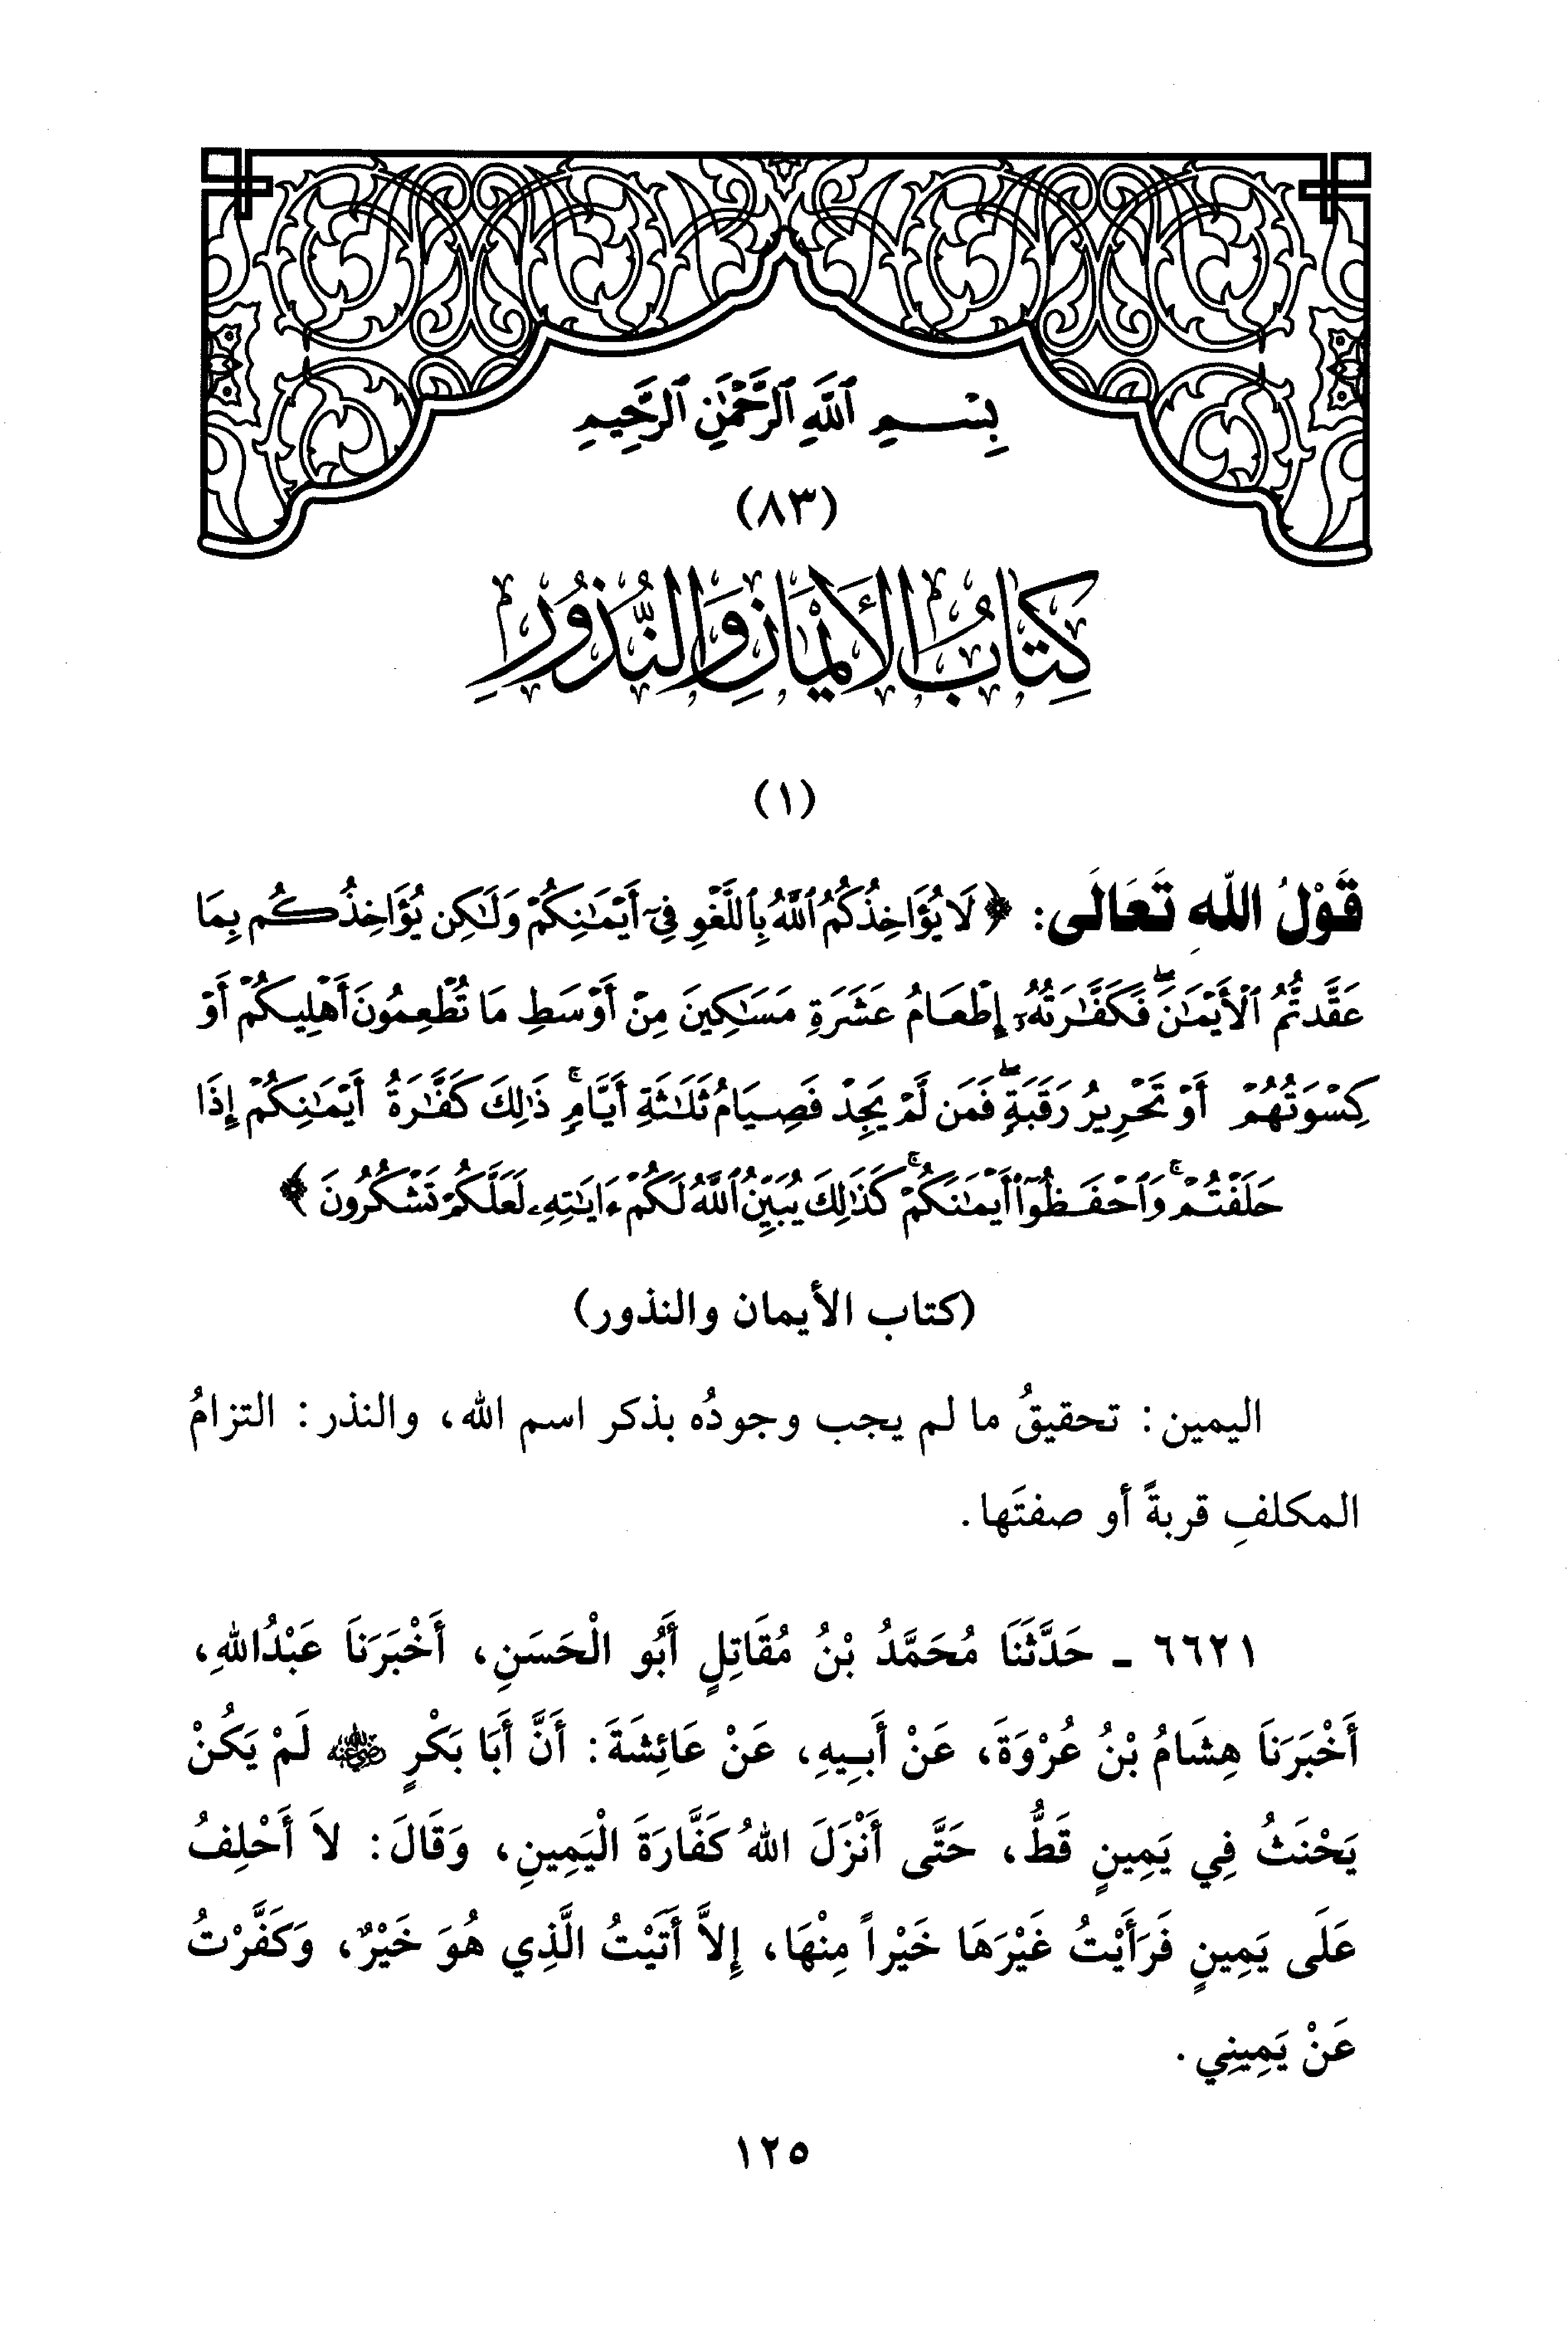 بِسْمِ ٱللَّهِ ٱلرَّحْمَٰنِ ٱلرَّحِيمِ
(٨٣)
كِتَابُ الأَيْمَانِ وَالنُّذُورِ
(١)
قَوْلُ اللَّهِ تَعَالَى: ﴿ لَا يُؤَاخِذُكُمُ ٱللَّهُ بِٱللَّغْوِ فِىٓ أَيْمَٰنِكُمْ وَلَٰكِن يُؤَاخِذُكُم بِمَا
عَقَّدتُّمُ ٱلْأَيْمَٰنَ ۖ فَكَفَّٰرَتُهُۥٓ إِطْعَامُ عَشَرَةِ مَسَٰكِينَ مِنْ أَوْسَطِ مَا تُطْعِمُونَ أَهْلِيكُمْ أَوْ
كِسْوَتُهُمْ أَوْ تَحْرِيرُ رَقَبَةٍ ۖ فَمَن لَّمْ يَجِدْ فَصِيَامُ ثَلَٰثَةِ أَيَّامٍ ۚ ذَٰلِكَ كَفَّٰرَةُ أَيْمَٰنِكُمْ إِذَا
حَلَفْتُمْ ۚ وَٱحْفَظُوٓا۟ أَيْمَٰنَكُمْ ۚ كَذَٰلِكَ يُبَيِّنُ ٱللَّهُ لَكُمْ ءَايَٰتِهِۦ لَعَلَّكُمْ تَشْكُرُونَ ﴾
(كتاب الأيمان والنذور)
اليمين: تحقيقُ ما لم يجب وجودُه بذكر اسم الله، والنذر: التزامُ
المكلفِ قربةً أو صفتَها.
٦٦٢١ - حَدَّثَنَا مُحَمَّدُ بْنُ مُقَاتِلٍ أَبُو الْحَسَنِ، أَخْبَرَنَا عَبْدُاللهِ،
أَخْبَرَنَا هِشَامُ بْنُ عُرْوَةَ، عَنْ أَبِيهِ، عَنْ عَائِشَةَ: أَنَّ أَبَا بَكْرٍ رضي الله عنه لَمْ يَكُنْ
يَحْنَثُ فِي يَمِينٍ قَطُّ، حَتَّى أَنْزَلَ اللهُ كَفَّارَةَ الْيَمِينِ، وَقَالَ: لاَ أَحْلِفُ
عَلَى يَمِينٍ فَرَأَيْتُ غَيْرَهَا خَيْراً مِنْهَا، إِلاَّ أَتَيْتُ الَّذِي هُوَ خَيْرٌ، وَكَفَّرْتُ
عَنْ يَمِينِي.
١٢٥